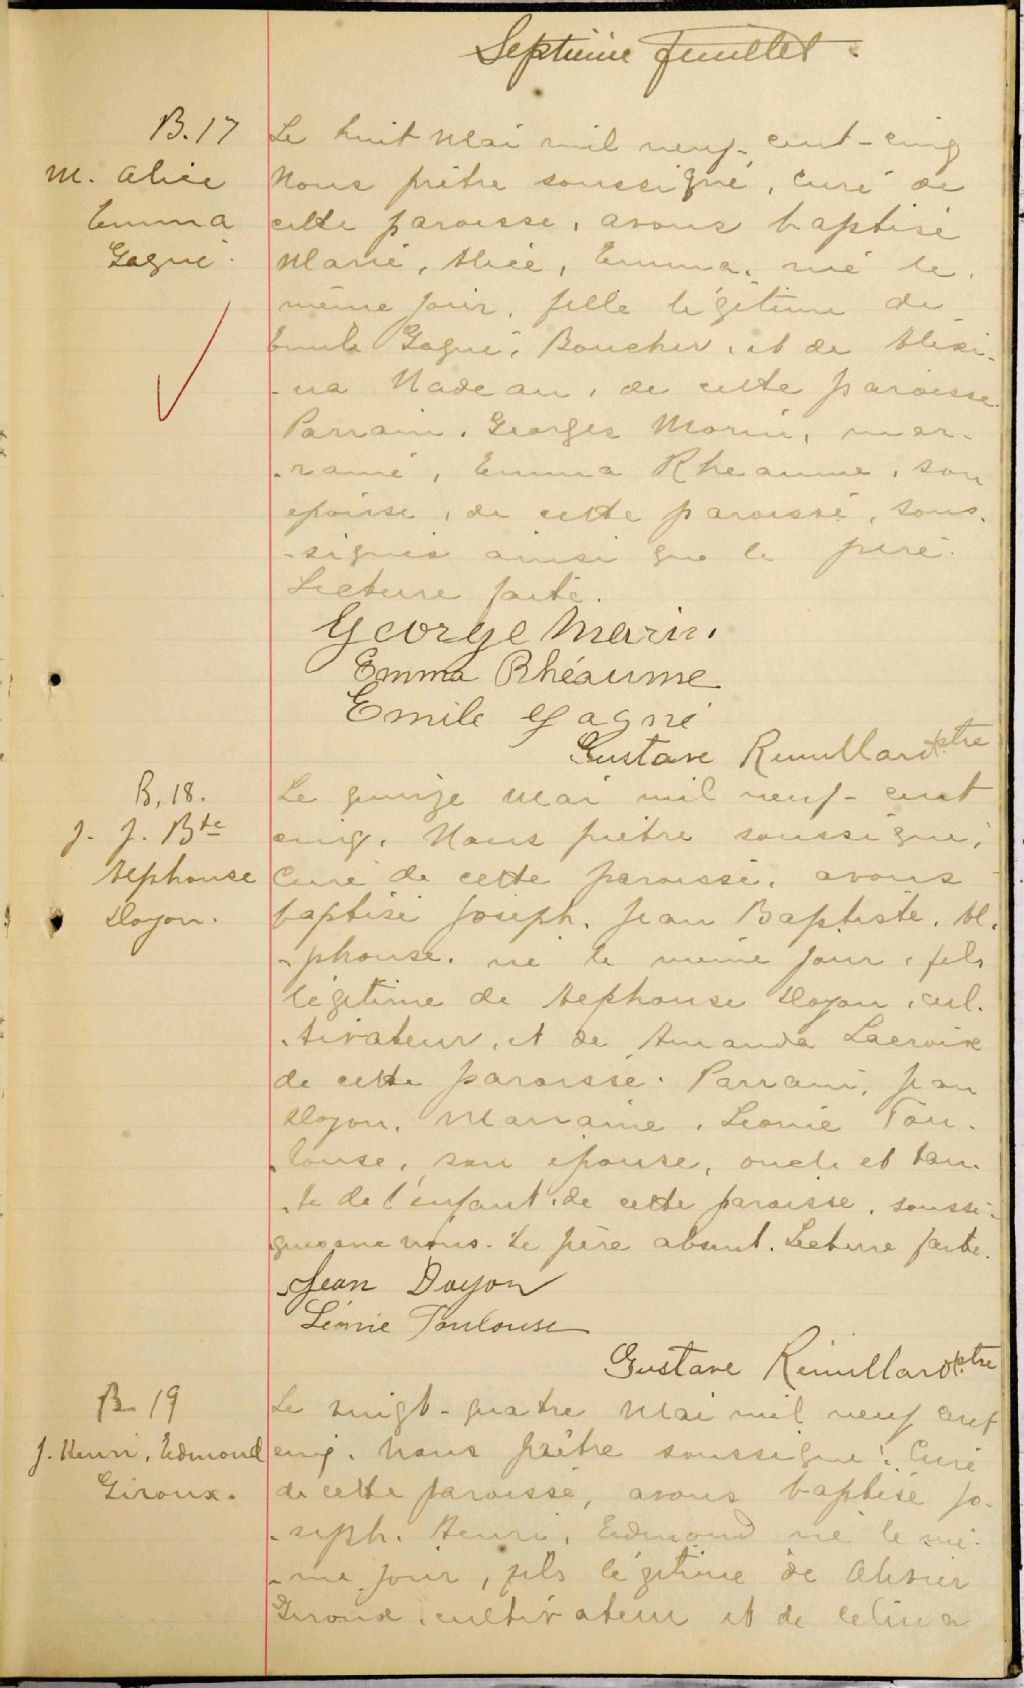 Septième feuillet
B. 17
M. Alice
Emma
Gagné.
Le huit Mai mil neuf-cent-cinq
Nous prêtre soussigné, Curé de
cette paroisse, avons baptisé
Marie, Alice, Emma, née le
même jour, fille légitime de
Emile Gagné, Boucher, et de Alexi-
-na Nadeau, de cette paroisse
Parrain, Georges Morin, mar-
-raine, Emma Rheaume, son
épouse, de cette paroisse, sous-
-signés ainsi que le père.
Lecture faite.
George Morin.
Emma Rhéaume
Emile Gagné
Gustave Remillard ptre
B. 18.
J. J. Bte
Alphonse
Doyon.
Le quinze Mai mil neuf-cent
cinq, Nous prêtre soussigné,
Curé de cette paroisse, avons
baptisé Joseph, Jean Baptiste, Al-
-phonse, né le même jour, fils
légitime de Alphonse Doyon, cul-
-tivateur, et de Amanda Lacroix
de cette paroisse. Parrain, Jean
Doyon, Marraine, Leonie Tou-
-louse, son épouse, oncle et tan-
-te de l'enfant de cette paroisse, soussi-
gnés avec nous. Le père absent. Lecture faite.
Jean Doyon
Léonie Toulouse
Gustave Rémillard ptre
B. 19
J. Henri, Edmond
Giroux.
Le vingt-quatre Mai mil neuf cent
cinq, Nous prêtre soussigné, Curé
de cette paroisse, avons baptisé Jo-
-seph, Henri, Edmond né le mê-
-me jour, fils légitime de Olivier
Giroux, cultivateur et de Celina